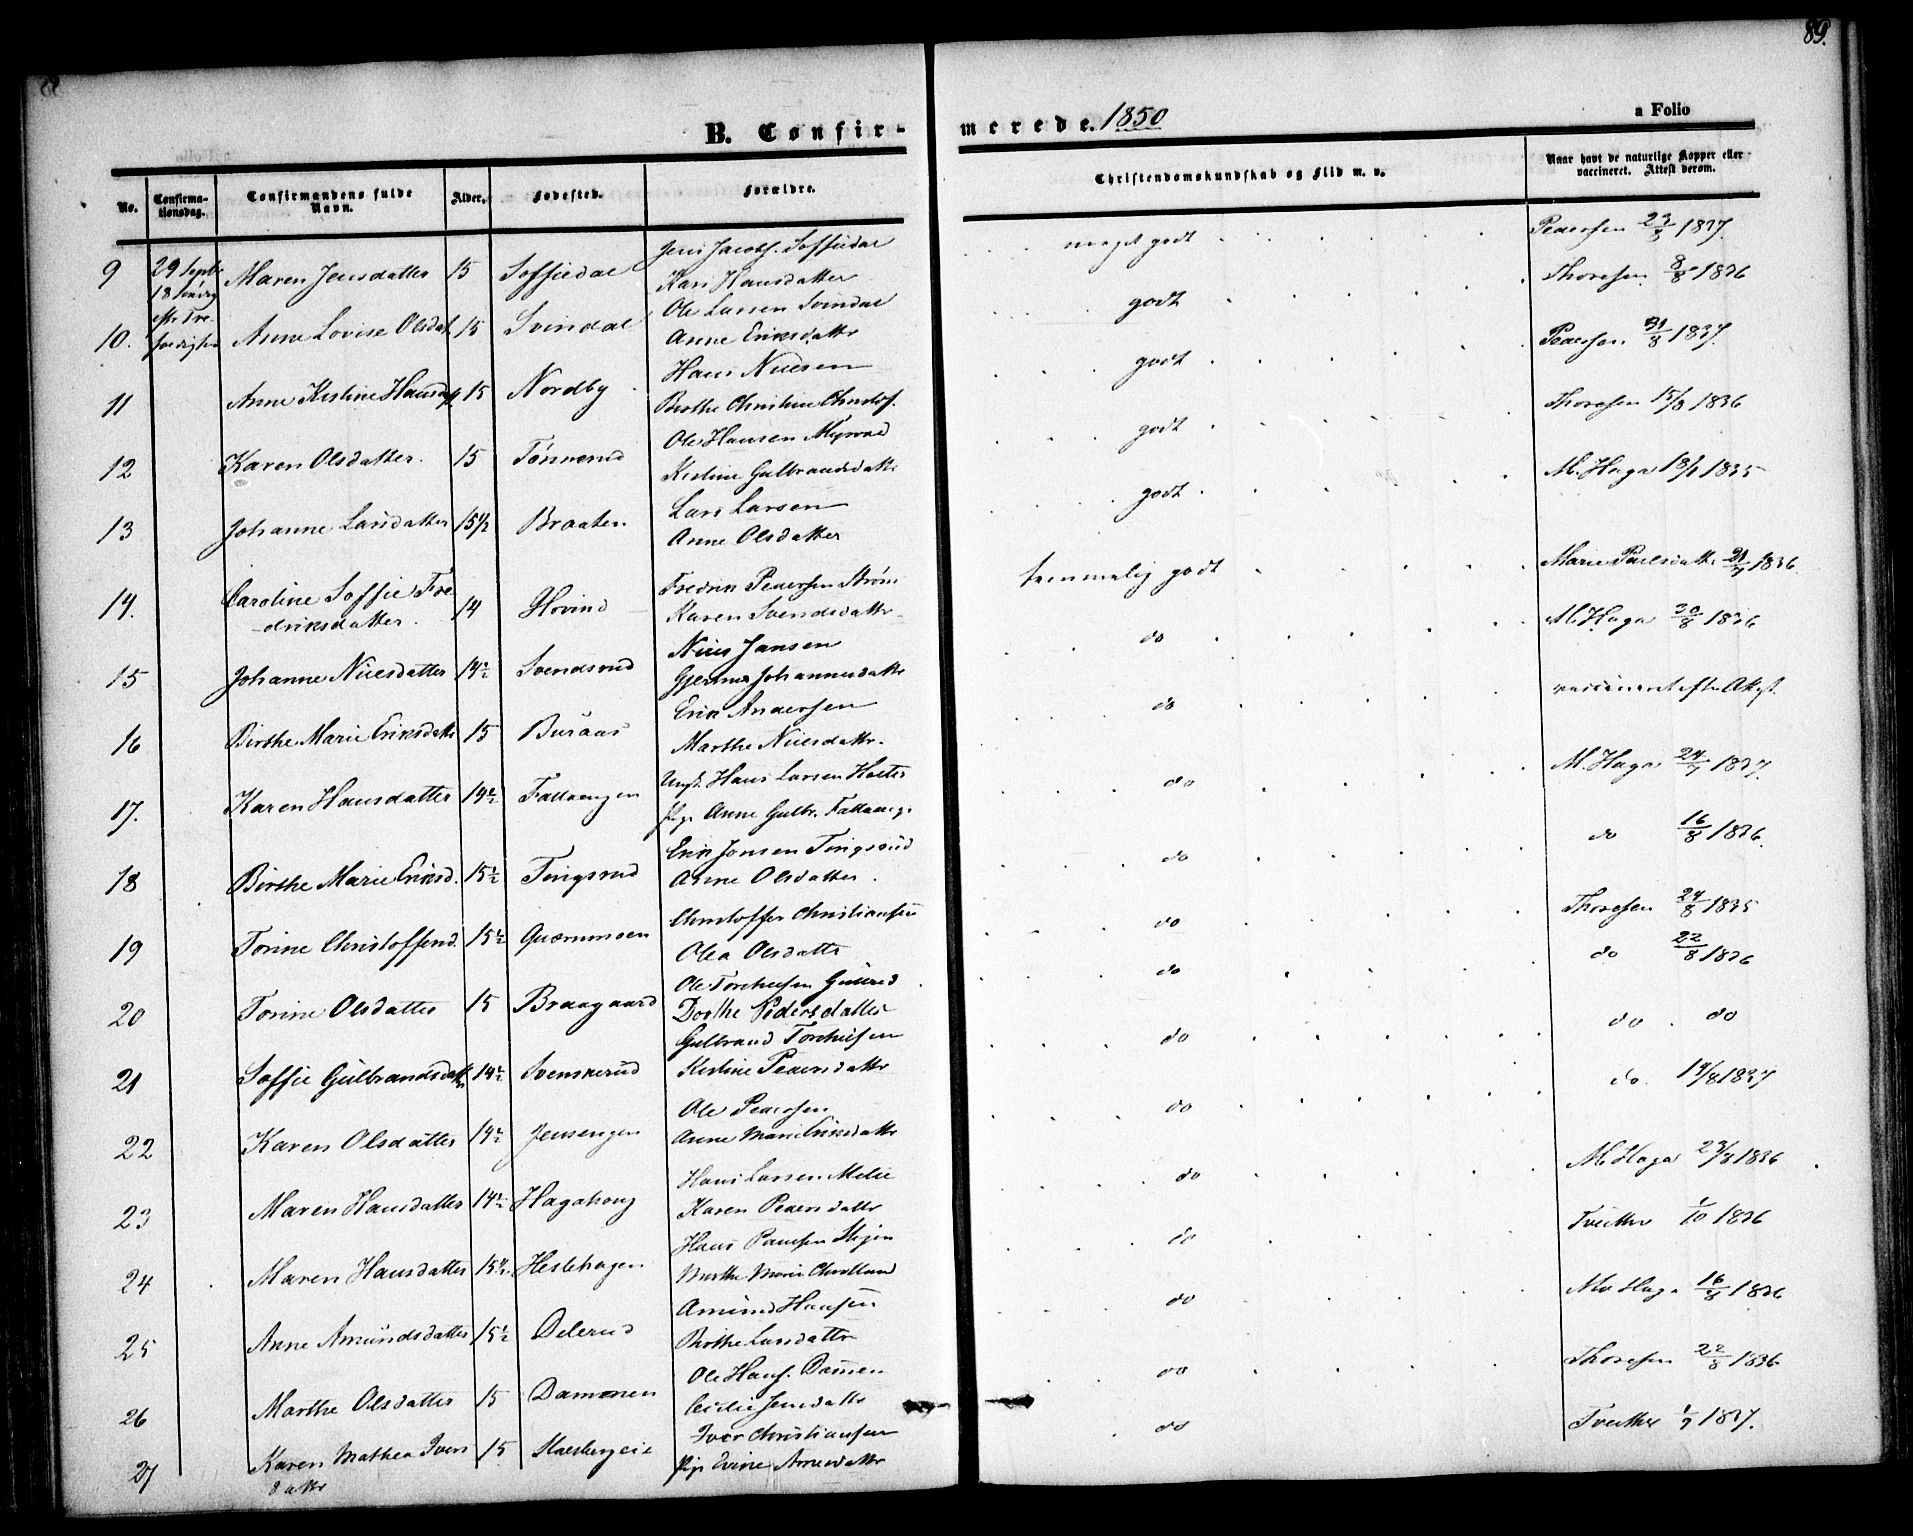 89.
B. Confirmerede. 1850
a Folio
No.
Confirmationsdag.
Confirmandens fulde Navn.
Alder.
Fødested.
Forældre.
Christendomskundskab og Flid m. v.
Naar havt de naturlige Kopper eller vaccineret. Attest derom.
9 29 Septb 18 Søndag eftr Trefoldighed Maren Jensdatter 15 Soffiedal Jens Jacobs. Soffiedal
Kari Hansdatter meget godt Pedersen 1837.
10. Anne Lovise Olsdat 15 Svindal Ole Larsen Svindal
Anne Eriksdattr godt Thoresen 8/8 1836
11 Anne Kistine Hansd 15 Nordby Hans Nilsen
Birthe Christine Christof. godt Pedersen 1837.
12 Karen Olsdatter. 15 Tønnerud Ole Hansen Myrvad
Kistine Gulbrandsdattr godt Thoresen 15/8 1836
13 Johanne Larsdatter 15 1/2 Braaten Lars Larsen
Anne Olsdatter godt M. Haga 1835
14. Caroline Soffie Fredriksdatter. 14 Hovind Fredrik Pedersen Strøm
Karen Svendsdattr temmelig godt Marie Paulsdattr 1836.
15 Johanne Nilsdatter 14 1/2 Svendsrud Nils Jansen
Johannesdattr do M. Haga 30/8 1836
16 Birthe Marie Eriksdattr 15 Buraas Erik Andersen
Marthe Nilsdattr. do vaccineret efter Attest.
17. Karen Hansdatter 14 1/2 Fallaengen Ungk. Hans Larsen Holter
Pige Anne Gulbr. Fallaeng. do M. Haga 24/7 1837.
18 Birthe Marie Eriksd. 15 1/2 Tingsrud Erik Jonsen Tingsrud
Anne Olsdatter. do do 16/8 1836.
19 Torine Christoffersd. 15 1/2 Quærnmoen Christoffer Christiansen
Olea Olsdattr do Thoresen 24/8 1835
20 Torine Olsdatter 15 Braagaard Ole Torchelsen
Dorthe Pedersdatter do do 22/8 1836
21 Soffie Gulbrandsdatter 14 1/2 Svenskerud Gulbrand Torchelsen
Kistine Pedersdattr do do. do
22 Karen Olsdatter 14 1/2 Jensengen Ole Pedersen
Anne Marie Eriksdattr do do. 14/8 1837
23 Maren Hansdatter 14 1/2 Hagahoug Hans Larsen Melie
Karen Pedersdattr do M Haga 23/8 1836
24 Maren Hansdatter 15 1/2 Heslehagen Hans Paulsen
Marthe Marie do Tveitter 1/10 1836
25 Anne Amundsdatter 15 1/2 Delerud Amund Hansen
Birthe Larsdattr do M Haga 16/8 1836
26 Marthe Olsdatter 15 Damenen Ole Hans. Damen
Cecilie Jensdattr do Thoresen 22/8 1836
27 Karen Mathea Iversdattr 15 Iver Christiansen
Pige Evine Arnesdattr do Tveitter 1837.